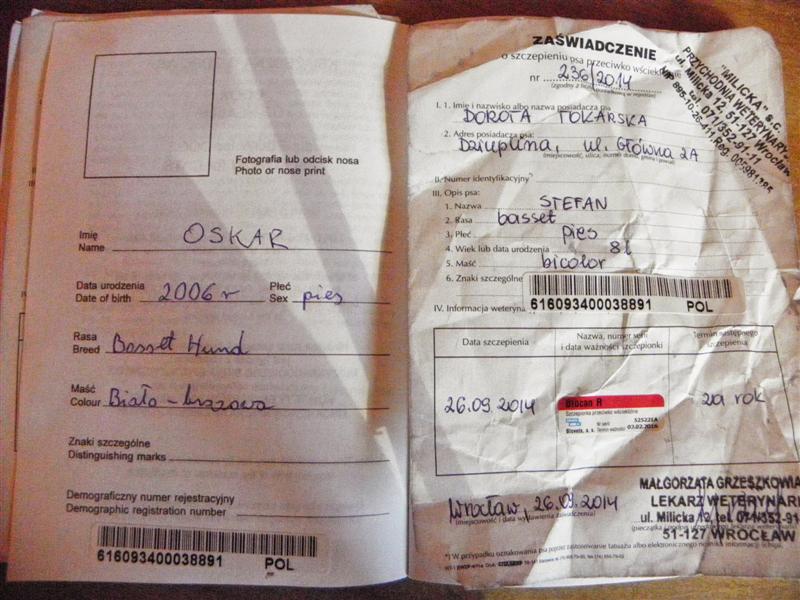 Fotografia lub odcisk nosa
Photo or nose print
Imię
Name OSKAR
Data urodzenia Płeć
Date of birth 2006 r Sex pies
Rasa
Breed Basset Hund
Maść
Colour Biało-brązowa
Znaki szczególne
Distinguishing marks
Demograficzny numer rejestracyjny
Demographic registration number
616093400038891 POL
ZAŚWIADCZENIE
o szczepieniu psa przeciwko
nr 236/2014
"MILICKA" s.c.
PRZYCHODNIA WETERYNARY
ul. Milicka 12, 51-127 Wrocław
tel. 071/352-91-11
I. 1. Imię i nazwisko albo nazwa posiadacza psa
DOROTA TOKARSKA
2. Adres posiadacza psa:
Dziuplina, ul. Główna 2A
II. Numer identyfikacyjny*)
III. Opis psa:
1. Nazwa STEFAN
2. Rasa basset
3. Płeć pies
4. Wiek lub data urodzenia 8l
5. Maść bicolor
6. Znaki szczególne
616093400038891 POL
IV. Informacja weteryna
Data szczepienia
Nazwa, numer serii
i data ważności szczepionki
Termin następnego
szczepienia
26.09.2014
Biocan R
Szczepionka przeciw wściekliźnie
Nr serii 525221A
Bioveta, a. s. Termin ważności 02.02.2016
za rok
Wrocław, 26.09.2014
(miejscowość i data wystawienia zaświadczenia)
MAŁGORZATA GRZESZKOWIA
LEKARZ WETERYNARI
ul. Milicka 12, tel. 071/352-91
51-127 WROCŁAW